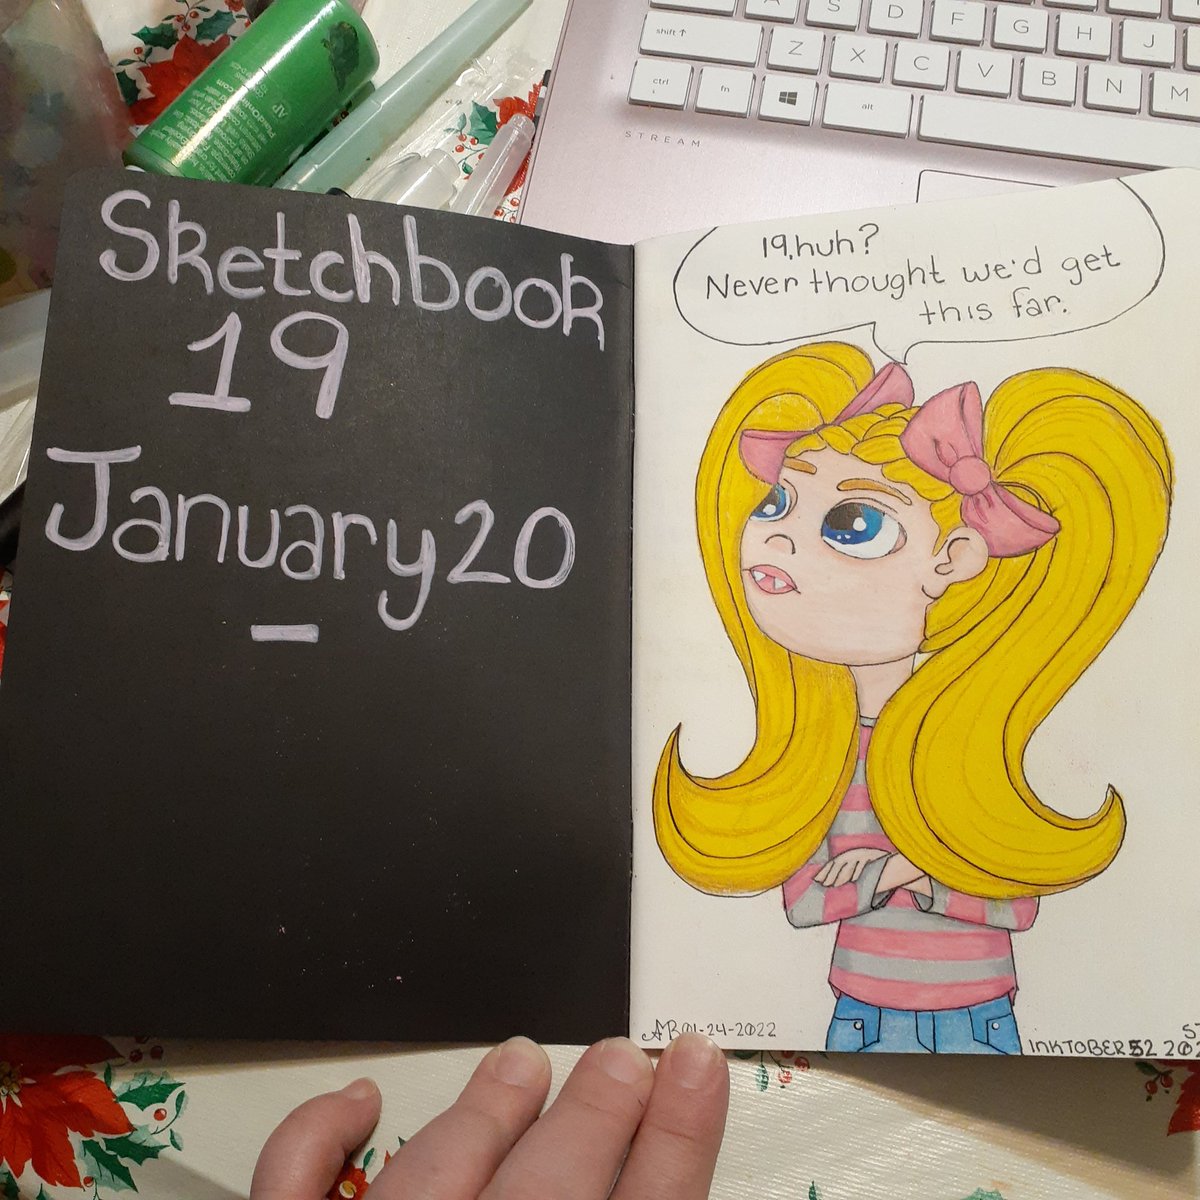 A S D F G H J
shift ↑ Z X C V B N M
ctrl fn alt
STREAM
Sketchbook
19
January 20
—
19, huh?
Never thought we'd get
this far.
AB 01-24-2022
INKTOBER52 202